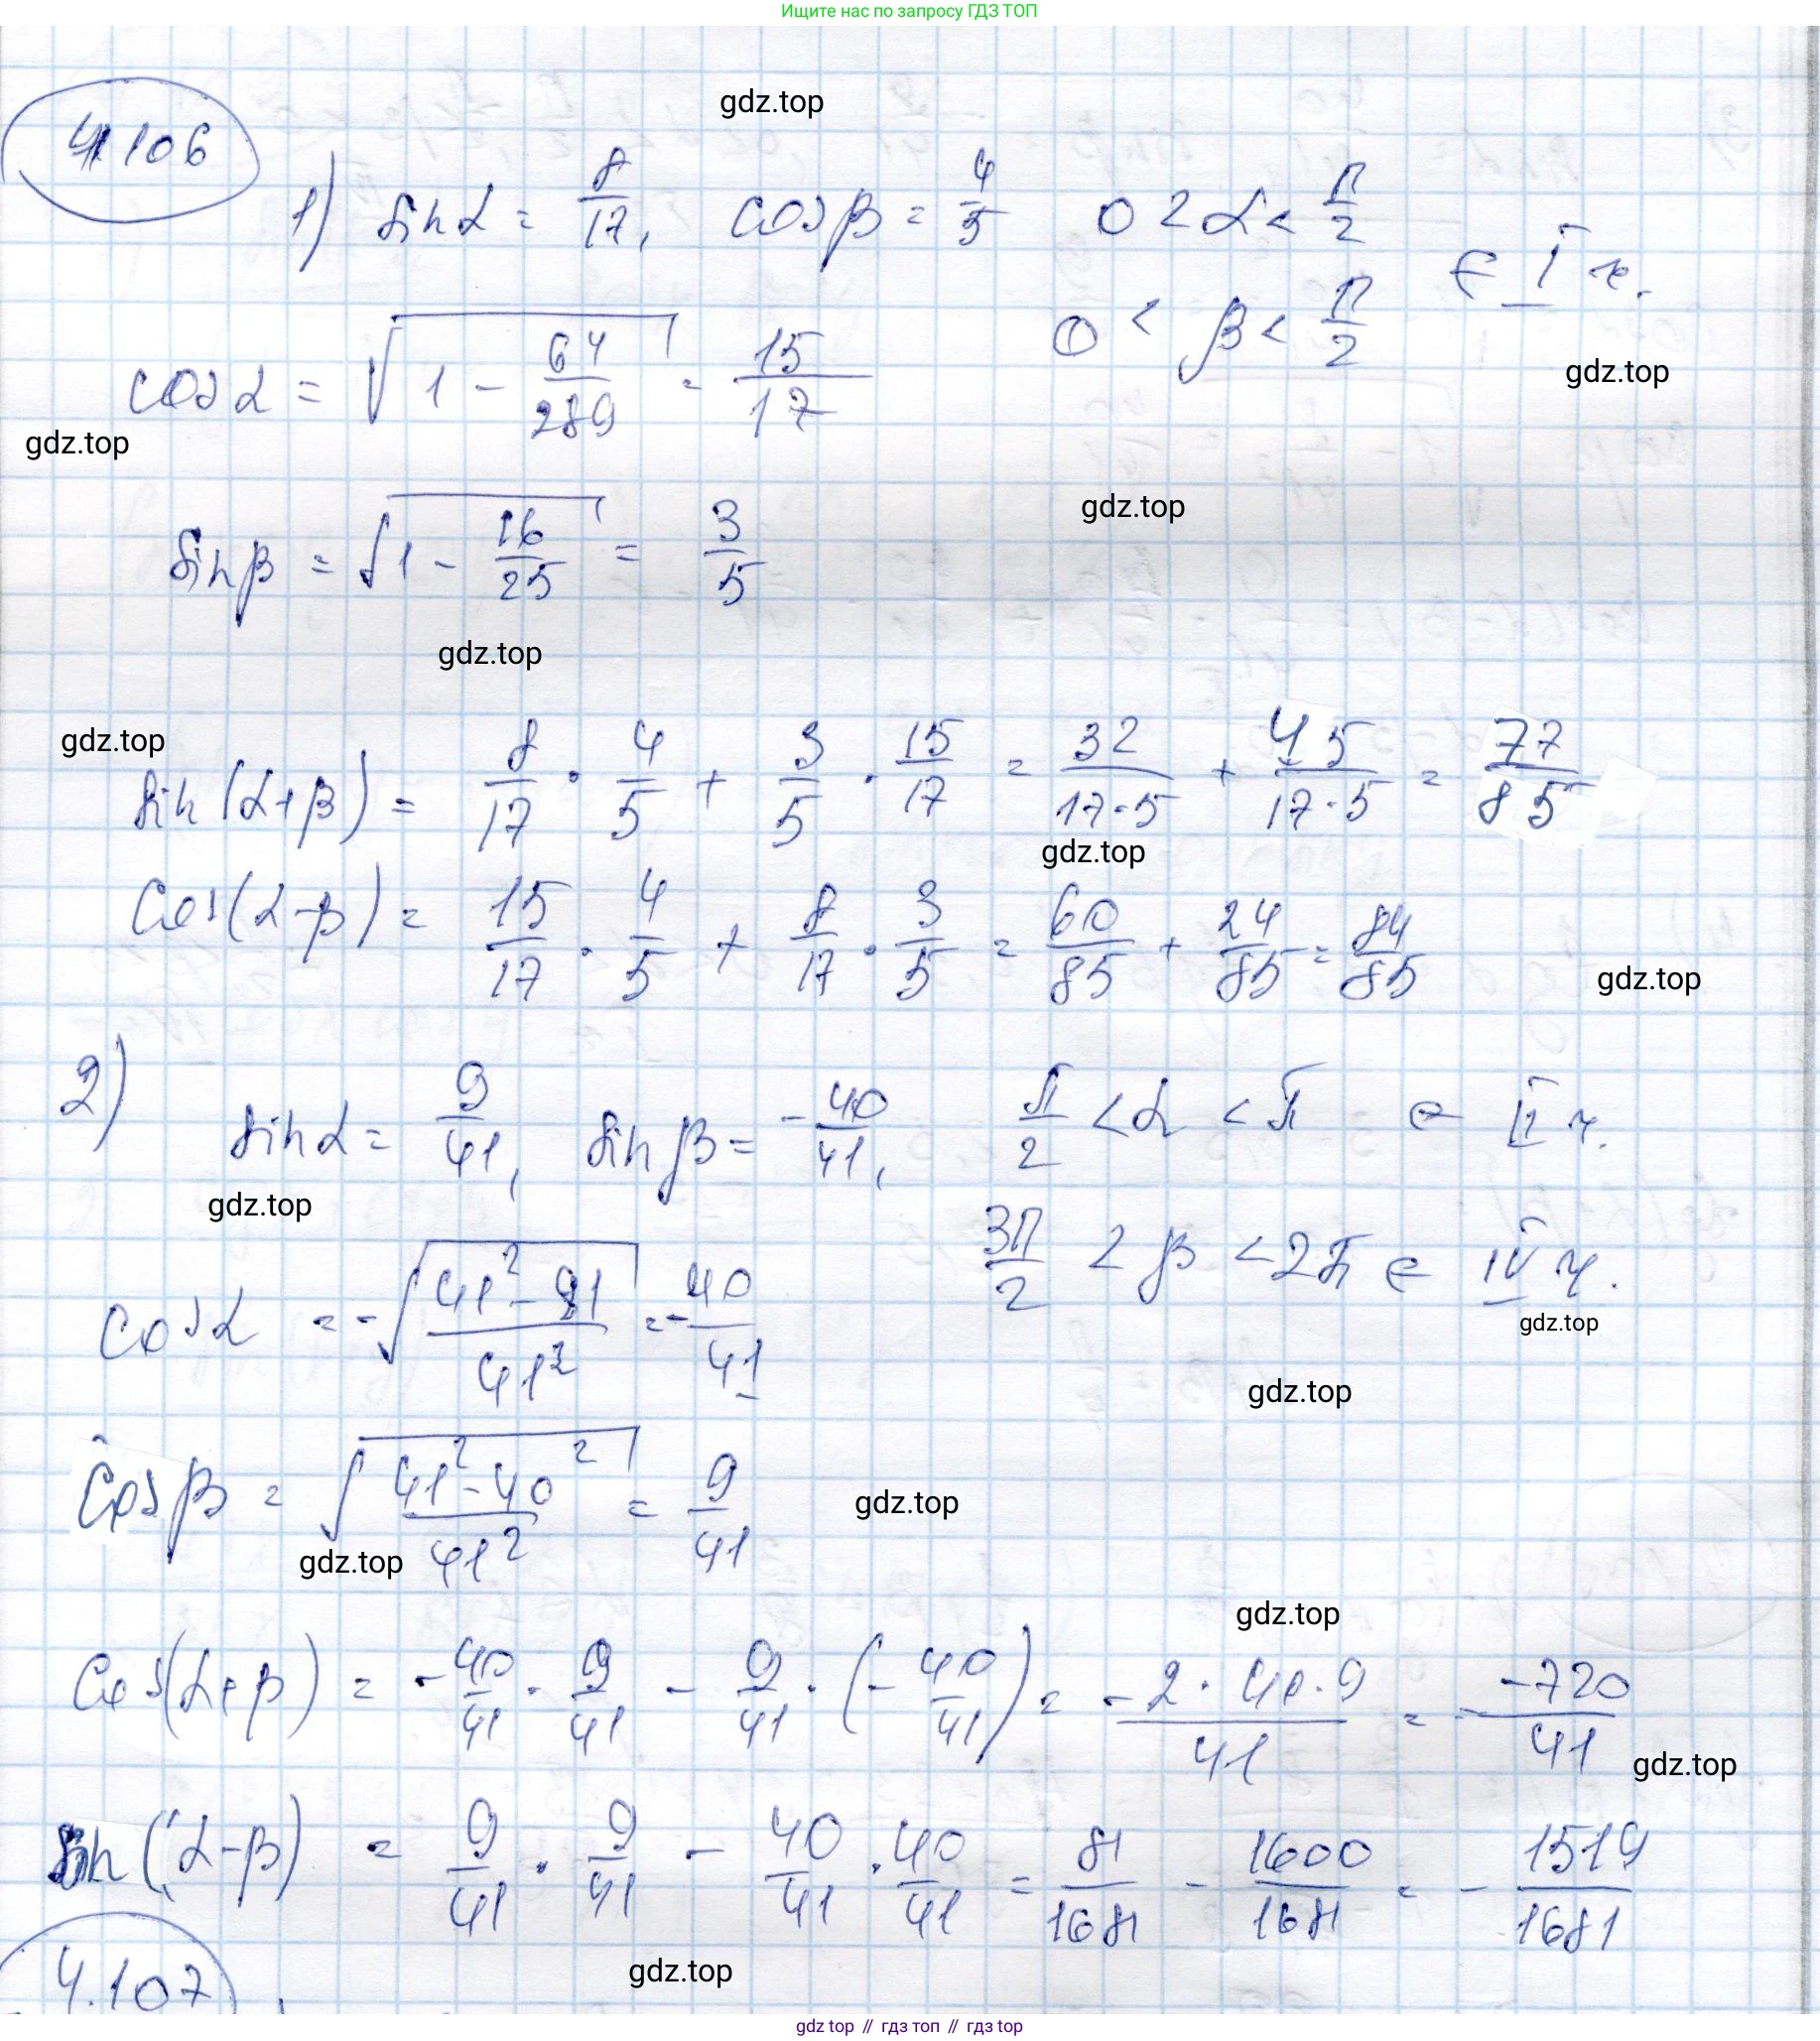 Ищите нас по запросу ГДЗ ТОП
4.106
gdz.top
1) sin α = 8/17, cos β = 4/5 0 < α < π/2
0 < β < π/2 ∈ I ч.
gdz.top
cos α = √(1 - 64/289) = 15/17
gdz.top
gdz.top
sin β = √(1 - 16/25) = 3/5
gdz.top
gdz.top
sin(α+β) = 8/17 · 4/5 + 3/5 · 15/17 = 32/(17·5) + 45/(17·5) = 77/85
gdz.top
cos(α-β) = 15/17 · 4/5 + 8/17 · 3/5 = 60/85 + 24/85 = 84/85
gdz.top
2) sin α = 9/41, sin β = -40/41, π/2 < α < π ∈ II ч.
gdz.top
3π/2 < β < 2π ∈ IV ч.
gdz.top
cos α = -√((41² - 81)/41²) = -40/41
gdz.top
cos β = √((41² - 40²)/41²) = 9/41
gdz.top
gdz.top
gdz.top
cos(α+β) = -40/41 · 9/41 - 9/41 · (-40/41) = (-2·40·9)/41 = -720/41
gdz.top
sin(α-β) = 9/41 · 9/41 - 40/41 · 40/41 = 81/1681 - 1600/1681 = -1519/1681
gdz.top
4.107
gdz top // гдз топ // gdz top